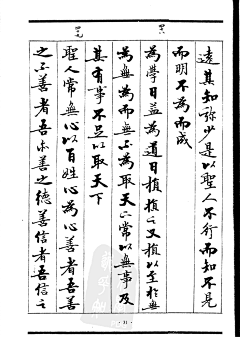 遠其知弥少是以聖人不行而知不見
而明不為而成
為學日益為道日損損之又損以至於無
為無為而無不為取天下常以無事及
其有事不足以取天下
聖人常無心以百姓心為心善者吾善
之不善者吾亦善之德善信者吾信之